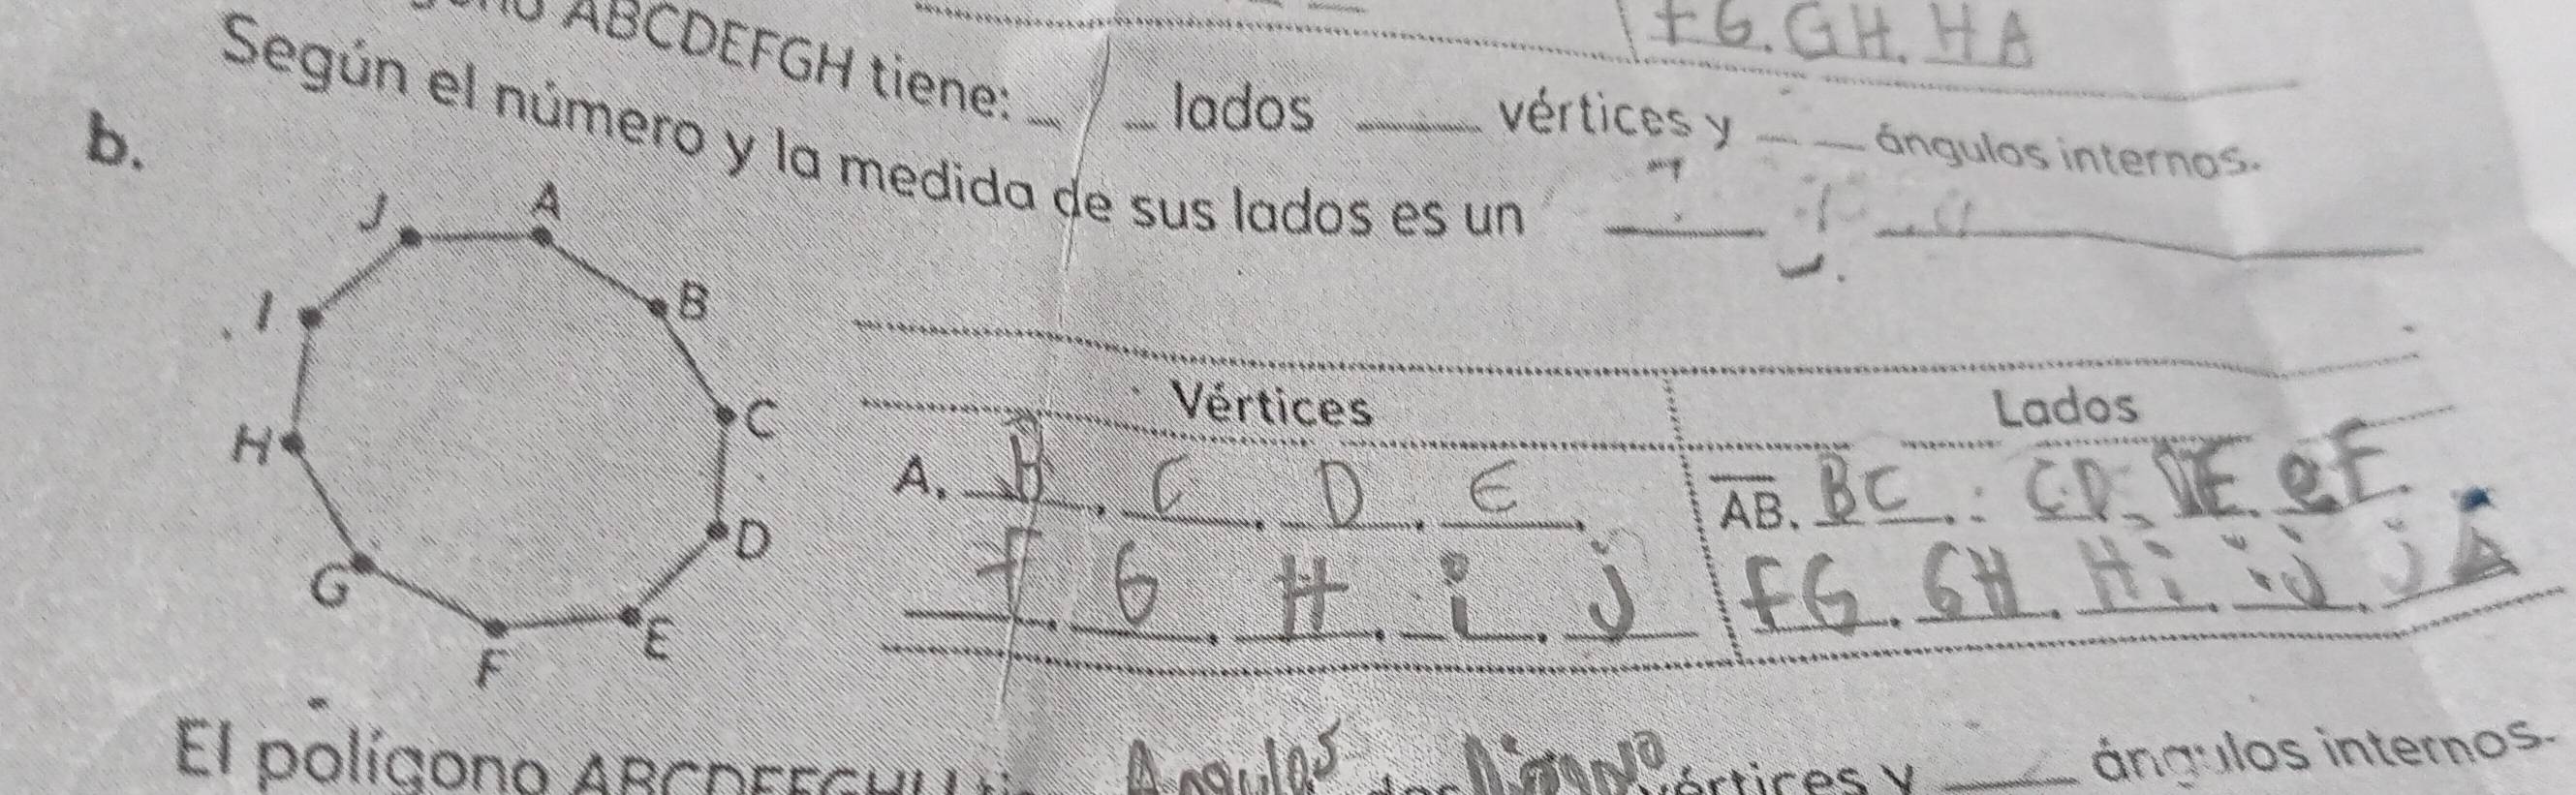 FG. GH. HA
ABCDEFGH tiene: lados vértices y ángulos internos.
Según el número y la medida de sus lados es un
b.
J A
I B
H C
G D
F E
Vértices Lados
A. B. C. D. E. AB. BC. CD. DE. eF.
F. G. H. i. j FG. GH. Hi. ij. jA
El polígono ABCDEFGHIJ Angulos vértices y ángulos internos.